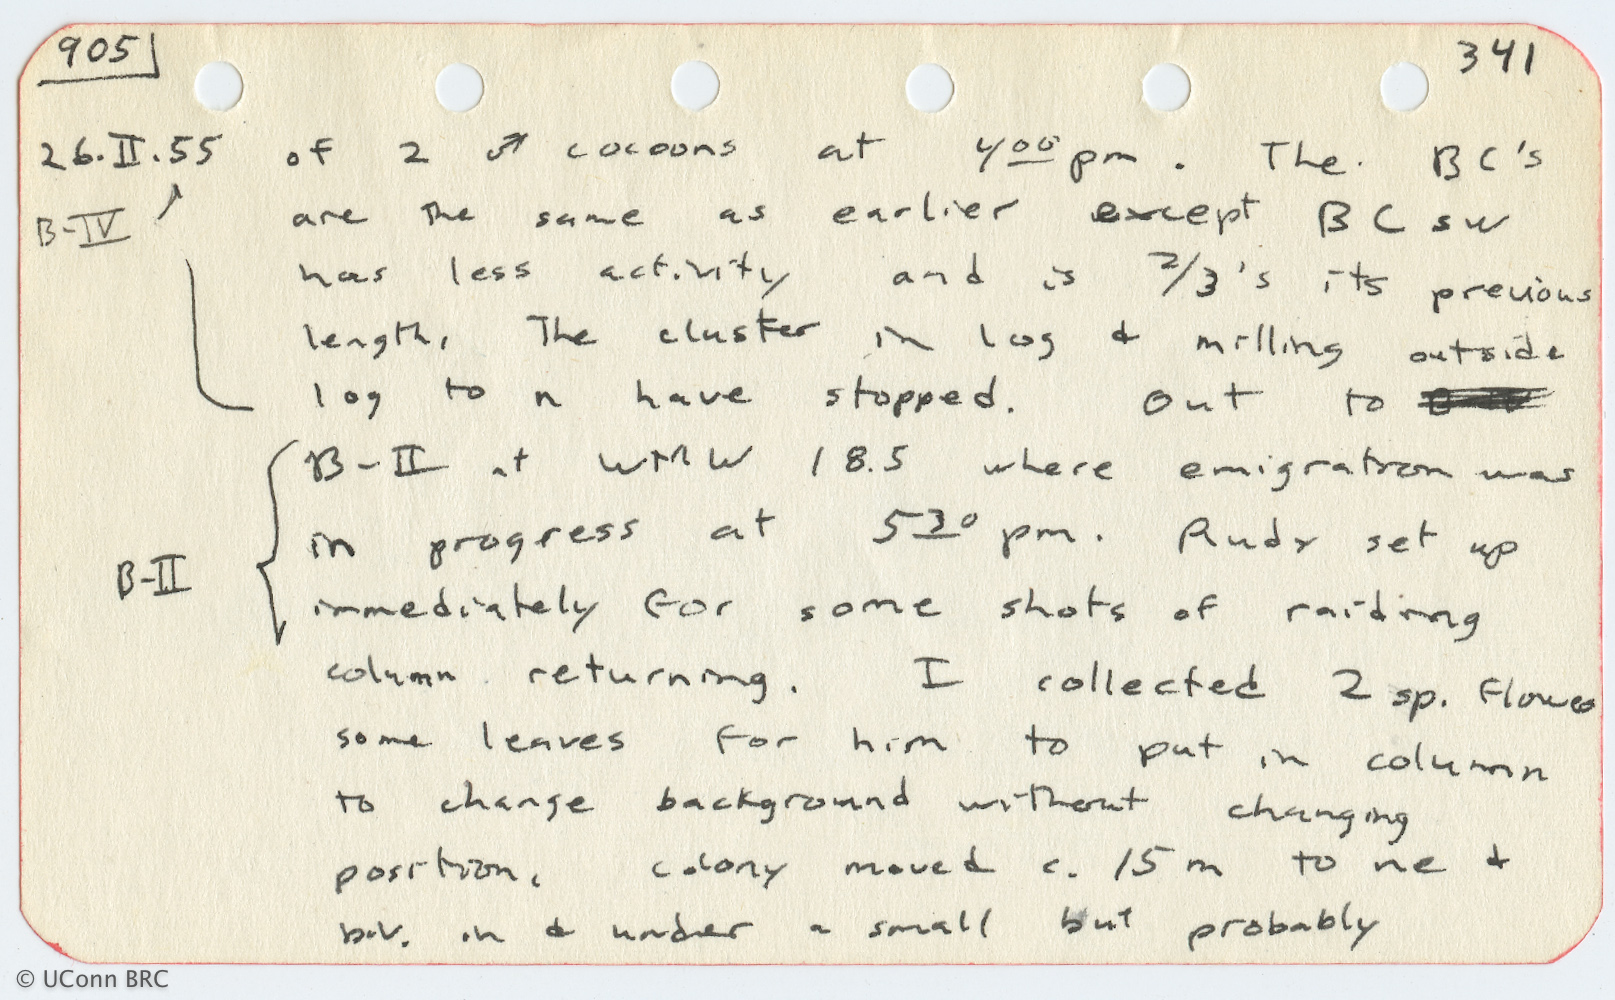 905
341
26.II.55 of 2 ♂ cocoons at 400 pm. The BC's
B-IV are the same as earlier except BC sw
has less activity and is 2/3's its previous
length. The cluster in log & milling outside
log to n have stopped. Out to
B-II at WMW 18.5 where emigration was
in progress at 530 pm. Rudy set up
B-II immediately for some shots of raiding
column returning. I collected 2 sp.
some leaves for him to put in column
to change background without changing
position. Colony moved c. 15 m to ne &
biv. in & under a small but probably
© UConn BRC